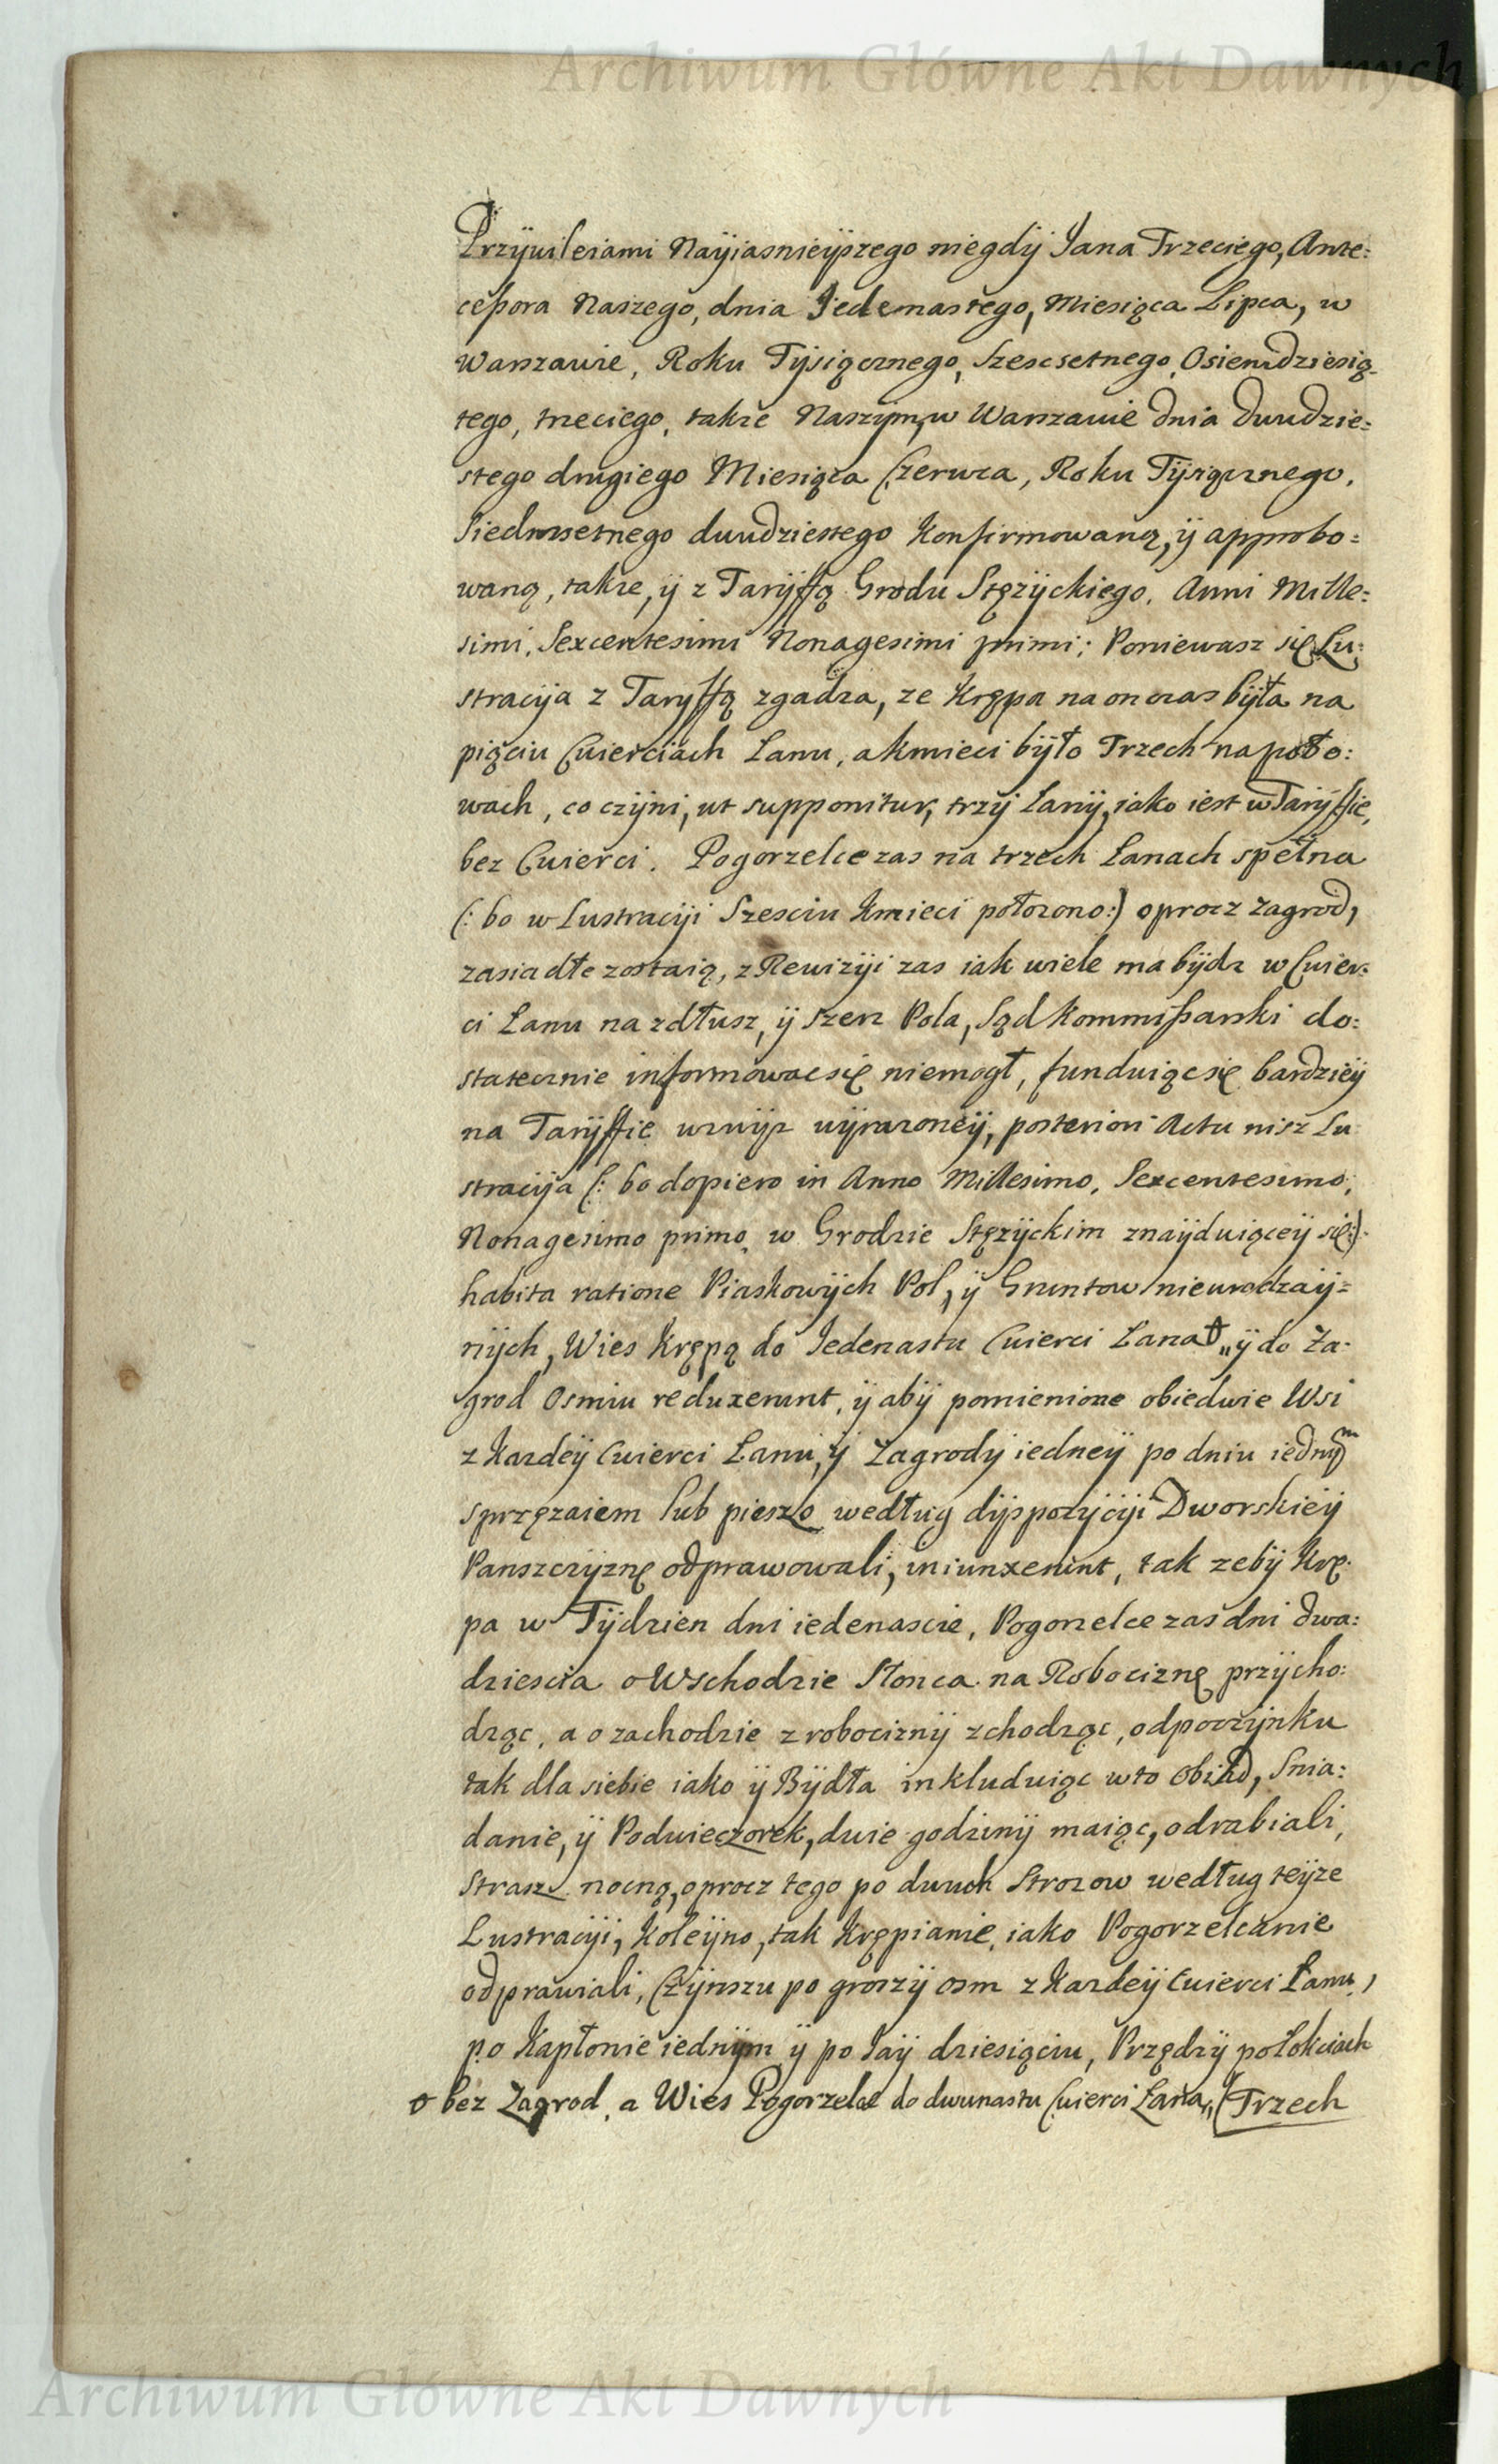 Archiwum Główne Akt Dawnych
Przywileiami Nayiasnieyszego niegdÿ Jana Trzeciego, Ante:
cessora Naszego, dnia Jedenastego, Miesiąca Lipca, w
Warszawie, Roku Tÿsiącznego, Szescsetnego, Osiemdziesią-
tego, trzeciego, także Naszÿm, w Warszawie dnia dwudzie:
stego drugiego Miesiąca Czerwca, Roku Tÿsiącznego,
Siedmsetnego dwudziestego konfirmowaną, ÿ approbo:
waną, także, ÿ z Tarÿffą Grodu Stęzÿckiego, Anni Mille:
simi, Sexcentesimi Nonagesimi primi; Poniewasz się Lu:
stracÿa z Tarÿffą zgadza, ze Krępa na on czas bÿła na
pięciu Cwierciach Łanu, a kmieci bÿło Trzech na poło:
wach, co czÿni, ut supponitur, trzÿ Łanÿ, iako iest w Tarÿffie,
bez Cwierci. Pogorzelce zas na trzech Łanach spełna
(: bo w Lustracÿi Szesciu Kmieci położono:) oprocz zagrod,
zasiadłe zostaią, z Rewizÿi zas iak wiele ma bÿdz w Cwier:
ci Łanu na zdłusz, ÿ szerz Pola, Sąd Kommissarski do:
statecznie informowac się niemogł, funduiąc się bardzieÿ
na Tarÿffie wzwÿz wÿrazoneÿ, posteriori Actu nisz Lu
stracÿa (: bo dopiero in Anno Millesimo, Sexcentesimo,
Nonagesimo primo, w Grodzie Stęzÿckim znaÿduiąceÿ się:)
habita ratione Piaskowÿch Pol, ÿ Gruntow nieurodzaÿ=
nÿch, Wies Krępą do Jedenastu Cwierci Łana ,, ÿ do Za-
grod Osmiu reduxerunt, ÿ abÿ pomienione obiedwie Wsi
z Kazdeÿ Cwierci Łanu, ÿ Zagrodÿ iedneÿ po dniu iednÿm
sprzęzaiem lub pieszo według dÿspozÿcÿi Dworskieÿ
Panszczÿznę odprawowali, iniunxerunt, tak zebÿ Krę-
pa w Tÿdzien dni iedenascie, Pogorzelce zas dni dwa:
dziescia o Wschodzie Słonca na Robociznę przÿcho:
dząc, a o zachodzie z robociznÿ zchodząc, odpoczÿnku
tak dla siebie iako ÿ Bÿdła inkluduiąc w to Obiad, Snia:
danie, ÿ Podwieczorek, dwie godzinÿ maiąc, odrabiali,
Strasz nocną, oprocz tego po dwuch Strozow według teÿze
Lustracÿi, Koleÿno, tak Krępianie, iako Pogorzelcanie
odprawiali, Czÿnszu po groszÿ osm z Kazdeÿ Cwierci Łanu,
po Kapłonie iednÿm ÿ po Jaÿ dziesięciu, Przędzÿ po Łokciach
bez Zagrod, a Wies Pogorzelce do dwunastu Cwierci Łana,, Trzech
Archiwum Główne Akt Dawnych